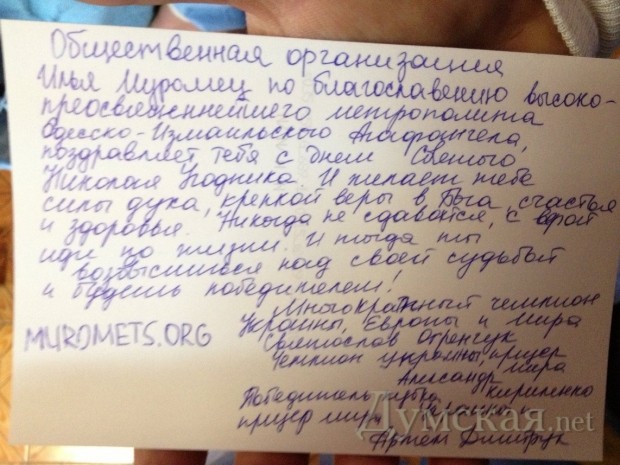 Общественная организация
Илья Муромец по благославению высоко-
преосвяженнейшего метрополита
Одесско-Измаильского Агафангела,
поздравляет тебя с днем Святого
Николая Угодника. И желает тебе
силы духа, крепкой веры в Бога, счастья
и здоровья. Никогда не сдавайся, с верой
иди по жизни. И тогда ты
возвысишься над своей судьбой
и будешь победителем!
Многократный чемпион
Украины, Европы и Мира
MUROMETS.ORG
Святослав
Чемпион украины, призер
мира
Александр Кириленко
Победитель кубка
призер мира
Артем Дмитрук
Думская.net